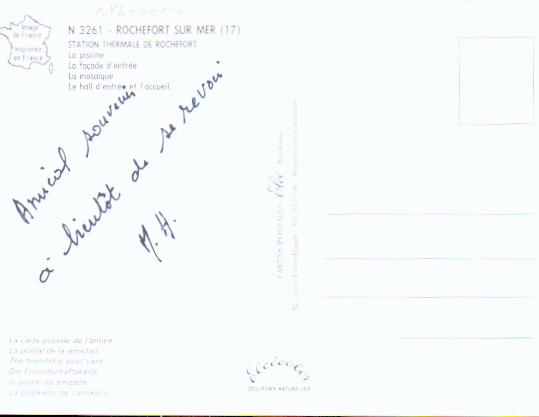 Image
de France
Imprimée
en France
N 3261 - ROCHEFORT SUR MER (17)
STATION THERMALE DE ROCHEFORT
La piscine
La façade d'entrée
La mosaïque
Le hall d'entrée et l'accueil.
Amical souvenir
à bientôt de se revoir
M. H.
CARTES POSTALES Elcé Bordeaux
La carte postale de l'amitié
La postal de la amistad
The friendship post card
Die Freundschaftskarte
O postal da amizade
La postkarto de l'amikeco
Elcécolor
COULEURS NATURELLES